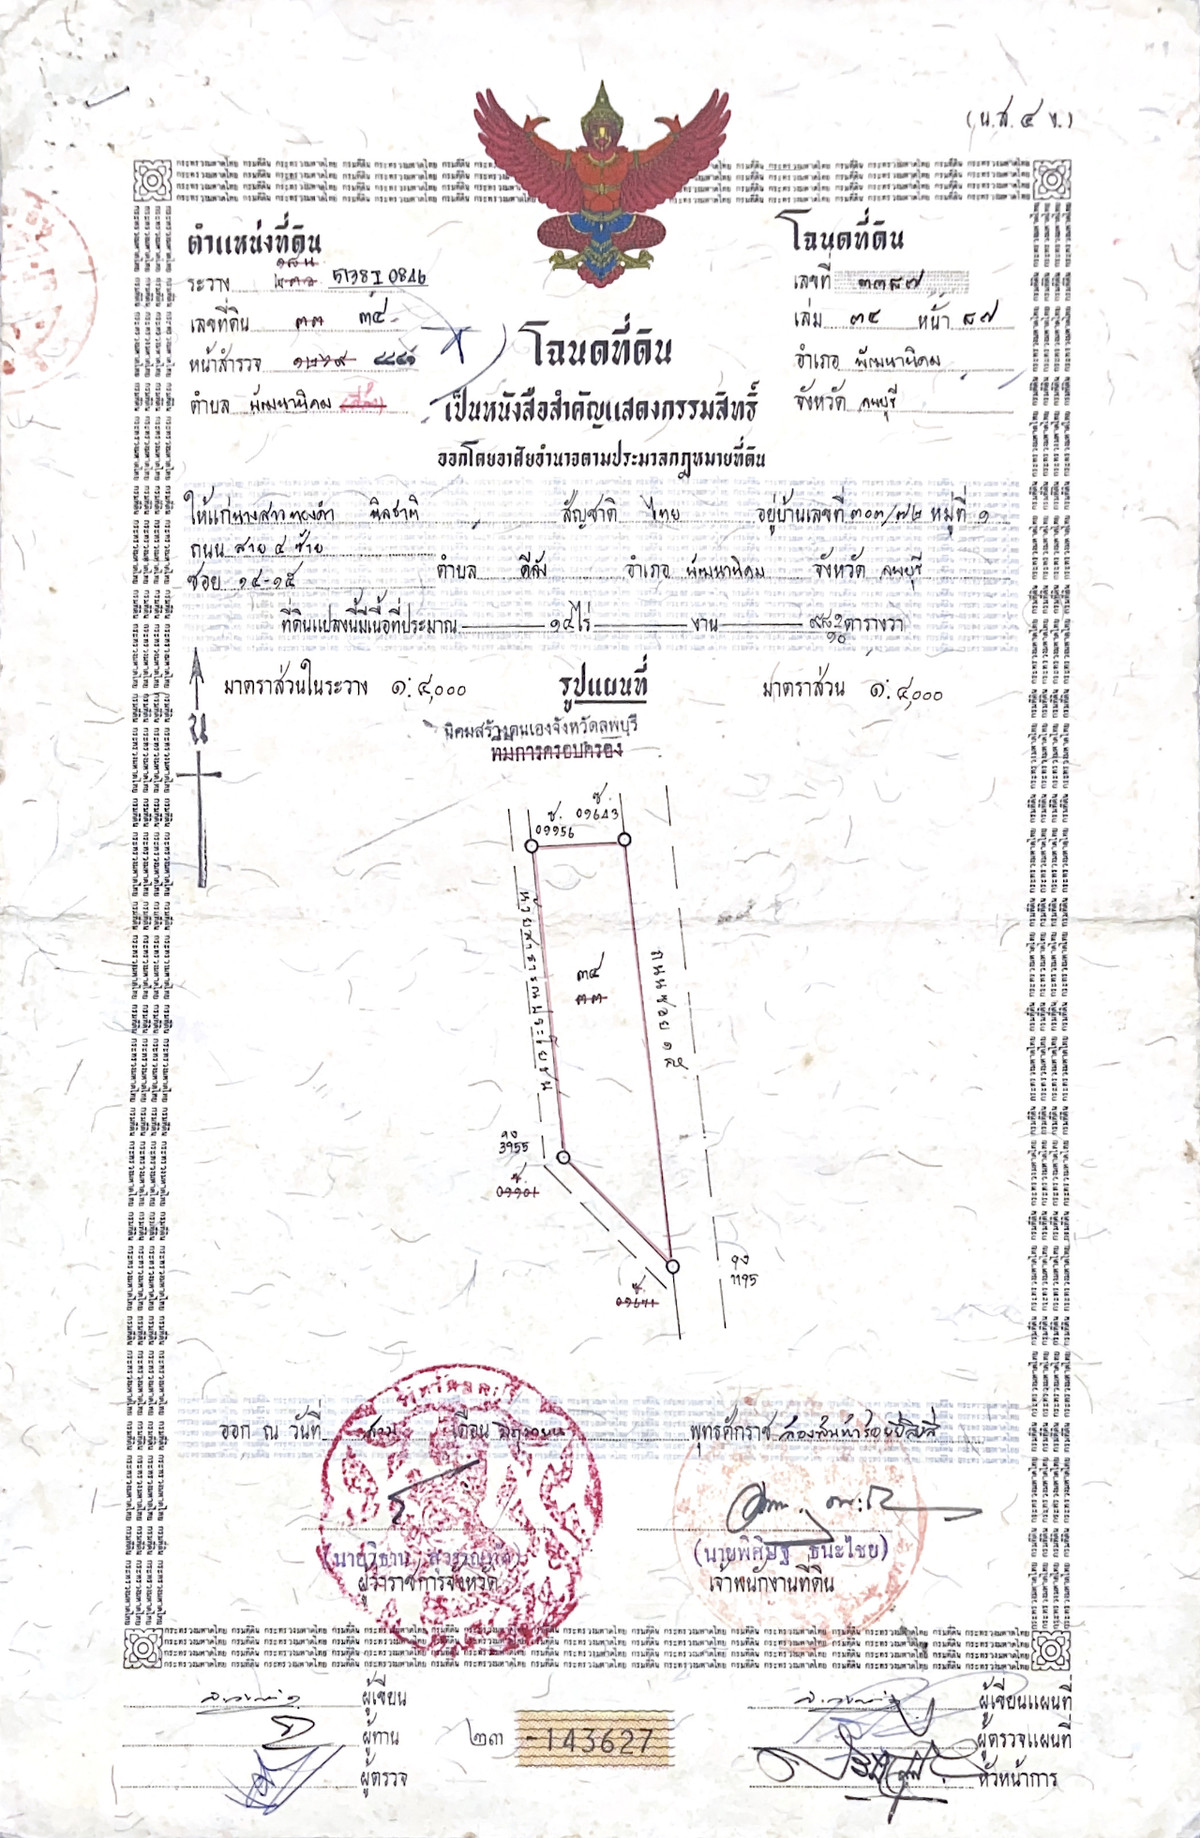 (น.ส. ๔ จ.)
ตำแหน่งที่ดิน
ระวาง 5138 I 0846
เลขที่ดิน ๓๓ ๓๔
หน้าสำรวจ ๔๔๔๑
ตำบล พัฒนานิคม
โฉนดที่ดิน
เลขที่ ๓๓๘๗
เล่ม ๓๔ หน้า ๘๗
อำเภอ พัฒนานิคม
จังหวัด ลพบุรี
โฉนดที่ดิน
เป็นหนังสือสำคัญแสดงกรรมสิทธิ์
ออกโดยอาศัยอำนาจตามประมวลกฎหมายที่ดิน
ให้แก่ นางสาวทองคำ นิลชาติ สัญชาติ ไทย อยู่บ้านเลขที่ ๓๐๓/๗๒ หมู่ที่ ๑
ถนน สาย ๔ ซ้าย
ซอย ๑๔-๑๕ ตำบล ดีลัง อำเภอ พัฒนานิคม จังหวัด ลพบุรี
ที่ดินแปลงนี้มีเนื้อที่ประมาณ ๑๔ ไร่ งาน ตารางวา
มาตราส่วนในระวาง ๑:๔,๐๐๐ รูปแผนที่ มาตราส่วน ๑:๔,๐๐๐
นิคมสร้างตนเองจังหวัดลพบุรี
น
ซ. 09956
ซ. 09643
ห้วยสาธารณประโยชน์
๓๔
๓๓
ถนนซอย ๑๕
3955
ซ. 09901
ซ. 09641
1195
ออก ณ วันที่ สาม เดือน มิถุนายน พุทธศักราช สองพันห้าร้อยยี่สิบสี่
ผู้ว่าราชการจังหวัด
(นายพิศิษฐ ธนะไชย)
เจ้าพนักงานที่ดิน
ผู้เขียน
ผู้ทาน
ผู้ตรวจ
๒๓ -143627
ผู้เขียนแผนที่
ผู้ตรวจแผนที่
หัวหน้าการ